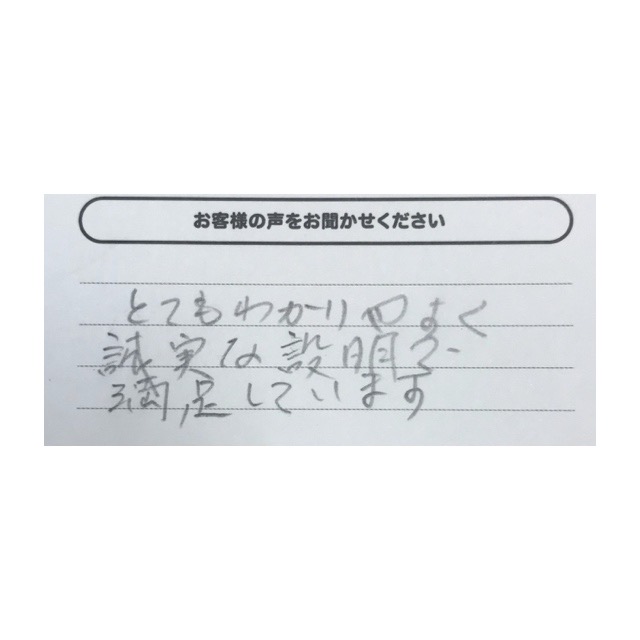 お客様の声をお聞かせください
とてもわかりやすく
誠実な設明で
満足しています